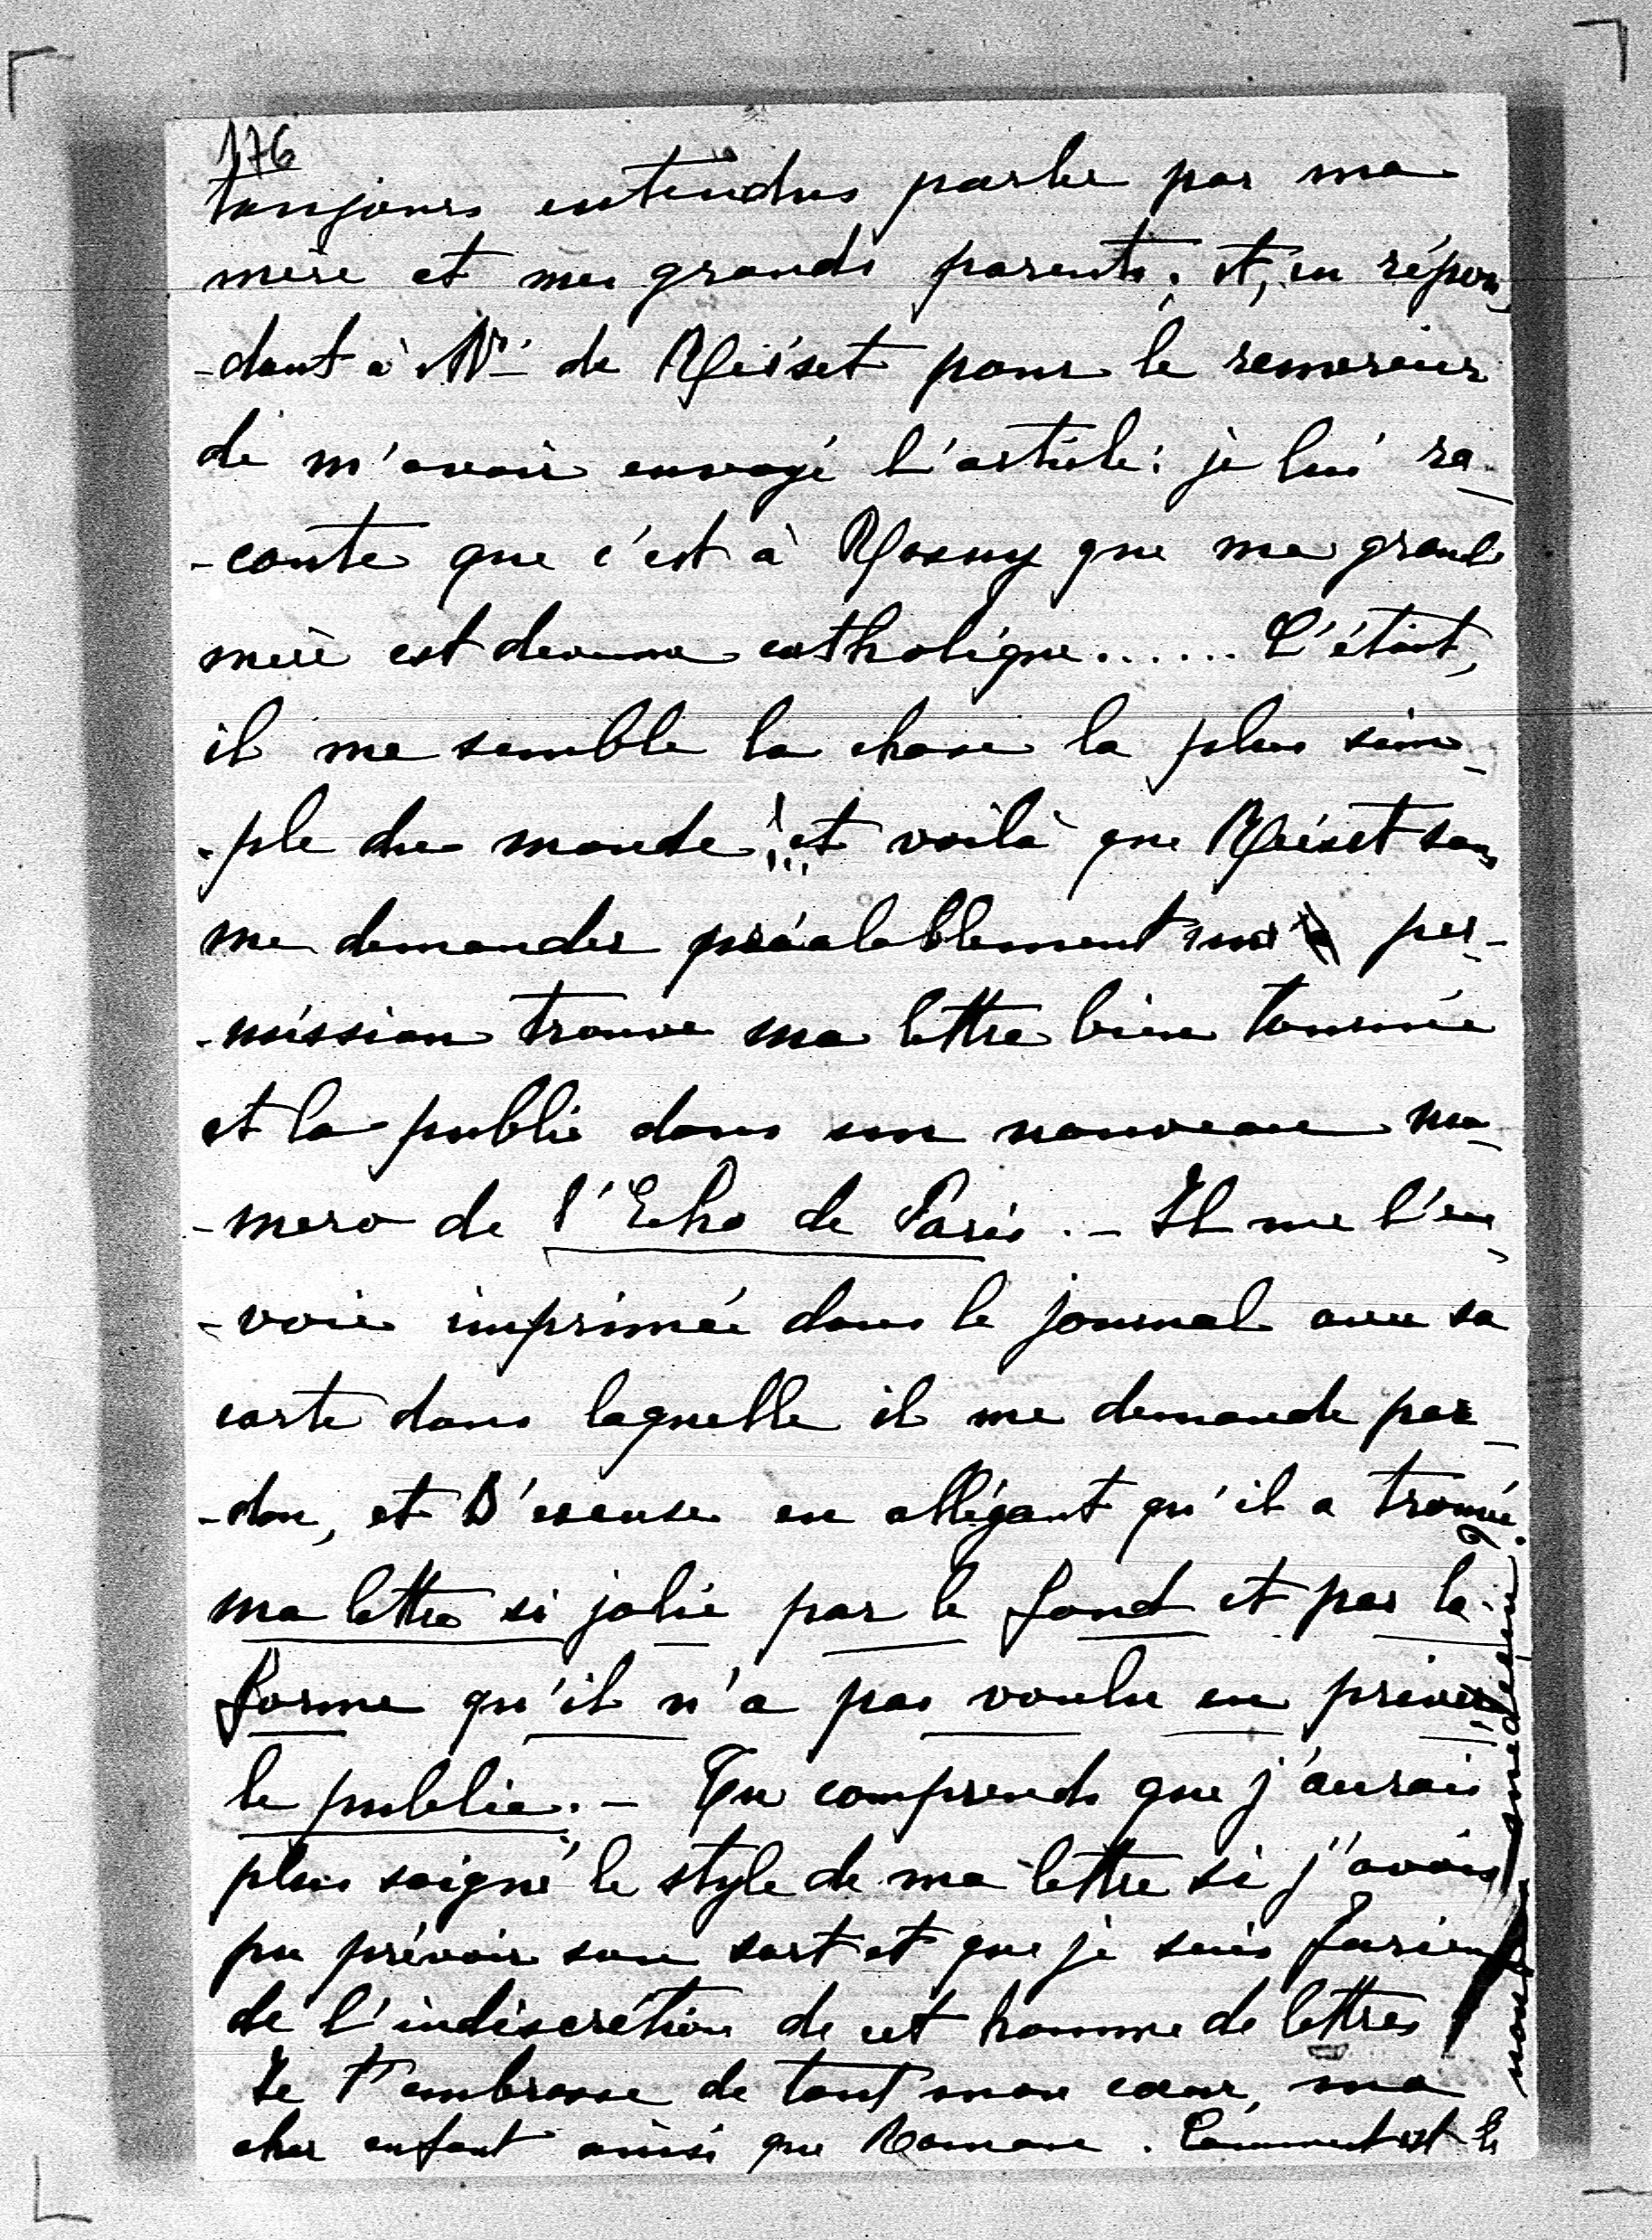 176
toujours entendus parler par ma
mère et mes grands parents; et, en répon-
-dant à Mr de Reiset pour le remercier
de m'avoir envoyé l'article: je lui ra-
-conte que c'est à Rosny que ma grand
mère est devenue catholique...... C'était,
il me semble la chose la plus sim-
-ple du monde!... et voilà que Reiset sans
me demander préalablement per-
-mission trouve ma lettre bien tournée
et la publie dans un nouveau nu-
-mero de l'Echo de Paris. - Il me l'en-
-voie imprimée dans le journal avec sa
carte dans laquelle il me demande par-
-don, et s'excuse en allégant qu'il a trouvé
ma lettre si jolie par le fond et par la
forme qu'il n'a pas voulu en priver
le public. - Tu comprends que j'aurais
plus soigné le style de ma lettre si j'avais
pu prévoir son sort et que je suis furieux
de l'indiscrétion de cet homme de lettres
Je t'embrasse de tout mon cœur, ma
cher enfant ainsi que Romane. Comment est le